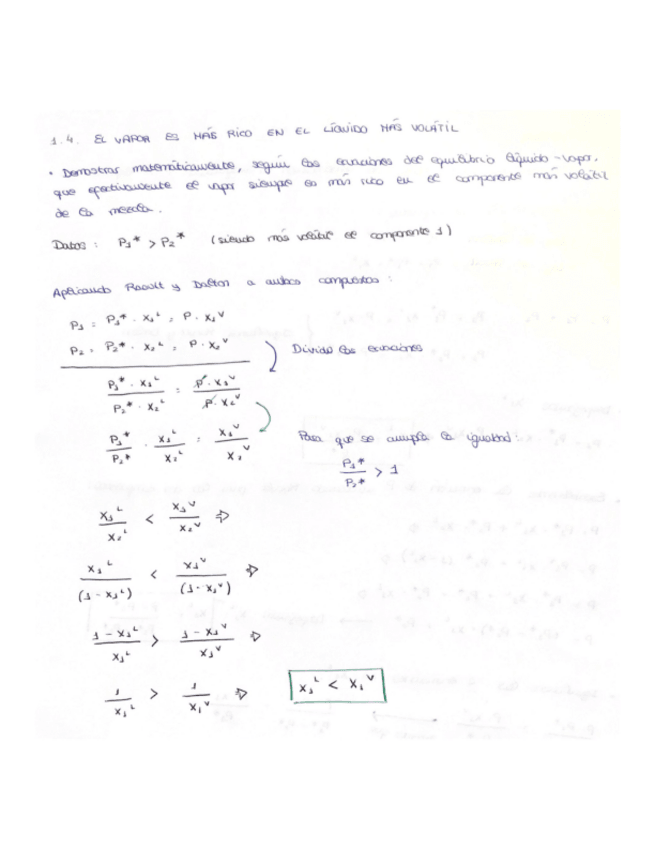 1.4. EL VAPOR ES MÁS RICO EN EL LÍQUIDO MÁS VOLÁTIL
• Demostrar matemáticamente, según las ecuaciones del equilibrio líquido-vapor,
que efectivamente el vapor siempre es más rico en el componente más volátil
de la mezcla.
Datos : P₁* > P₂* (siendo más volátil el componente 1)
Aplicando Raoult y Dalton a ambos compuestos :
P₁ = P₁* · x₁ᴸ = P · x₁ⱽ
P₂ = P₂* · x₂ᴸ = P · x₂ⱽ
Divido las ecuaciones
P₁* · x₁ᴸ / P₂* · x₂ᴸ = P · x₁ⱽ / P · x₂ⱽ
P₁* / P₂* · x₁ᴸ / x₂ᴸ = x₁ⱽ / x₂ⱽ
Para que se cumpla la igualdad :
P₁* / P₂* > 1
x₁ᴸ / x₂ᴸ < x₁ⱽ / x₂ⱽ ⇒
x₁ᴸ / (1 - x₁ᴸ) < x₁ⱽ / (1 - x₁ⱽ) ⇒
1 - x₁ᴸ / x₁ᴸ > 1 - x₁ⱽ / x₁ⱽ ⇒
1 / x₁ᴸ > 1 / x₁ⱽ ⇒ x₁ᴸ < x₁ⱽ